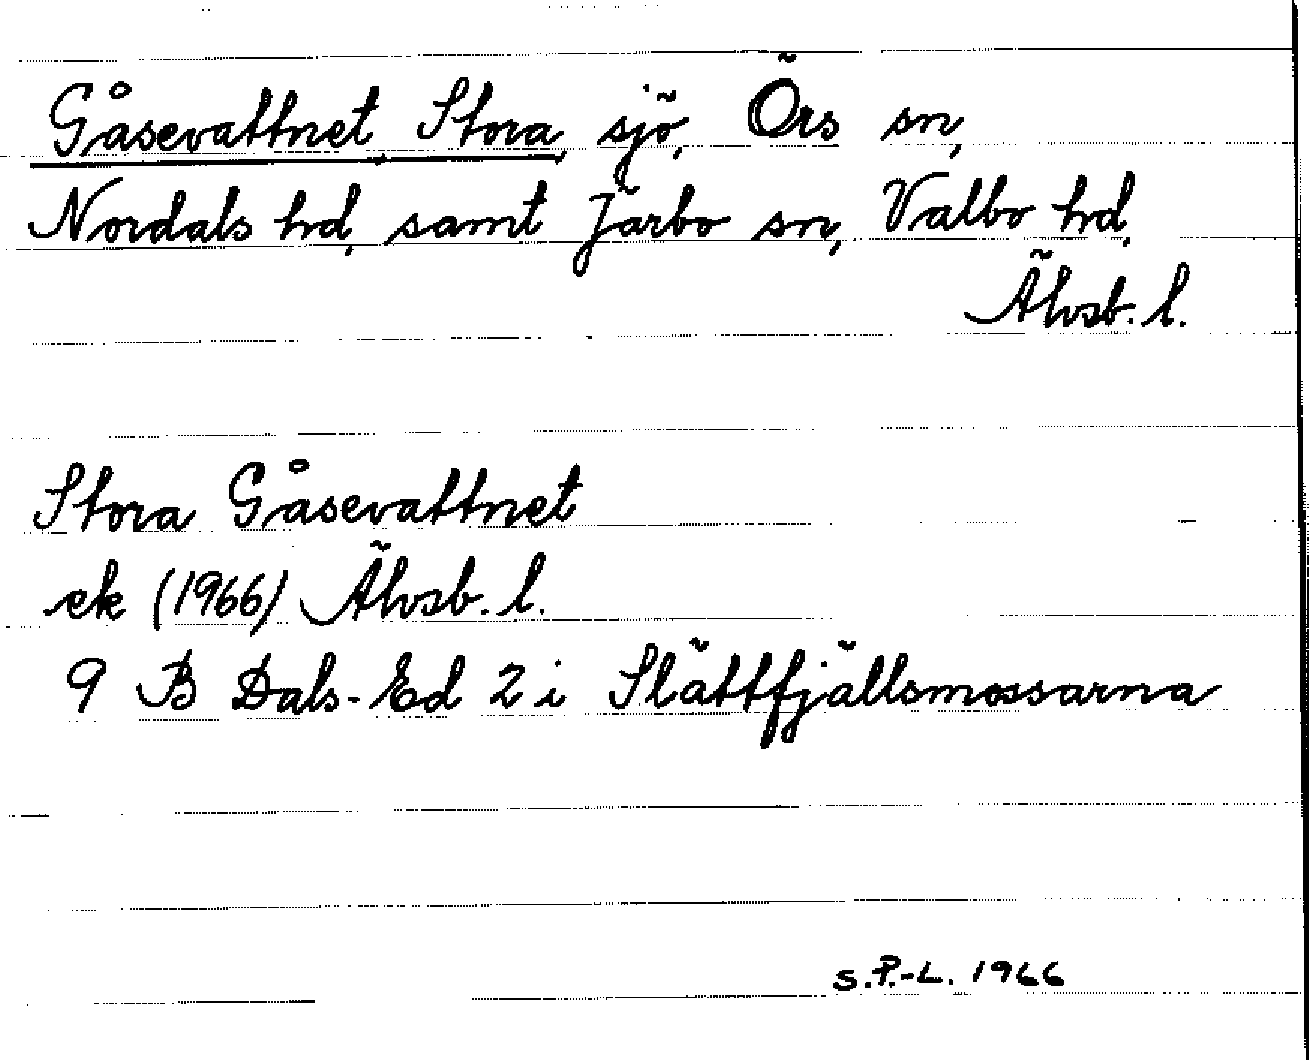 Gåsevattnet, Stora, sjö, Örs sn,
Nordals hd, samt Järbo sn, Valbo hd,
Älvsb. l.
Stora Gåsevattnet
ek (1966) Älvsb. l.
9 B Dals-Ed 2 i Slättfjällsmossarna
S.P.-L. 1966